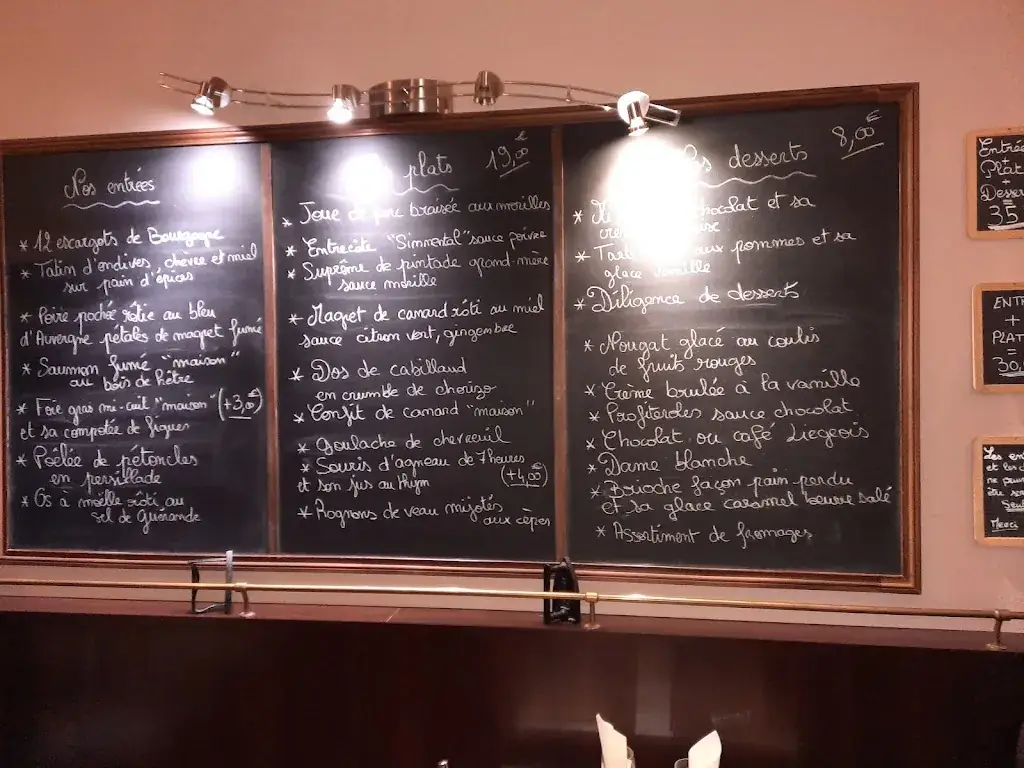 Nos entrées
* 12 escargots de Bourgogne
* Tatin d'endives chèvre et miel
sur pain d'épices
* Poire pochée rôtie au bleu
d'Auvergne pétales de magret fumé
* Saumon fumé "maison"
au bois de hêtre
* Foie gras mi-cuit "maison" (+3,00€)
et sa compotée de figues
* Poêlée de pétoncles
en persillade
* Os à moëlle rôti au
sel de Guérande
plats 19,00€
* Joue de porc braisée aux morilles
* Entrecôte "Simmental" sauce poivre
* Suprême de pintade grand-mère
sauce morille
* Magret de canard rôti au miel
sauce citron vert, gingembre
* Dos de cabillaud
en crumble de chorizo
* Confit de canard "maison"
* Goulache de chevreuil
* Souris d'agneau de 7 heures
et son jus au thym (+4,00€)
* Rognons de veau mijotés
aux cèpes
desserts 8,00€
* chocolat et sa
* aux pommes et sa
glace vanille
* Diligence de desserts
* Nougat glacé au coulis
de fruits rouges
* Crème brulée à la vanille
* Profiteroles sauce chocolat
* Chocolat ou café Liegeois
* Dame blanche
* Brioche façon pain perdu
et sa glace caramel beurre salé
* Assortiment de fromages
Entrée
+
Plat
+
Dessert
=
35
ENT
+
PLAT
=
30,
Les
et les
ne
être
Merci